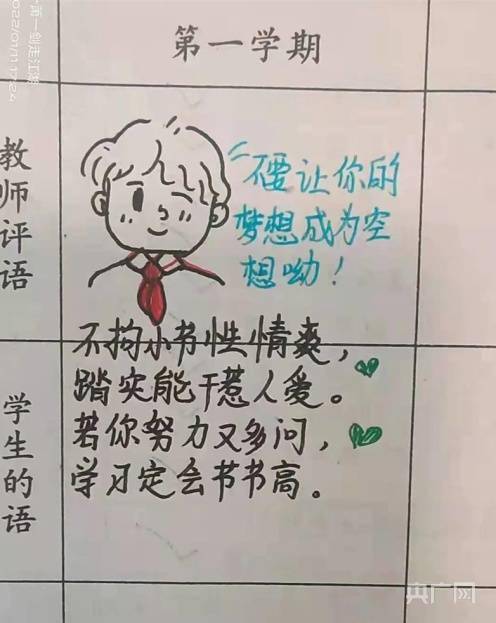 萧一剑走江湖
第一学期
教师评语
不要让你的
梦想成为空
想呦！
不拘小节性情爽，
踏实能干惹人爱。
若你努力又多问，
学习定会节节高。
学生的语
央广网